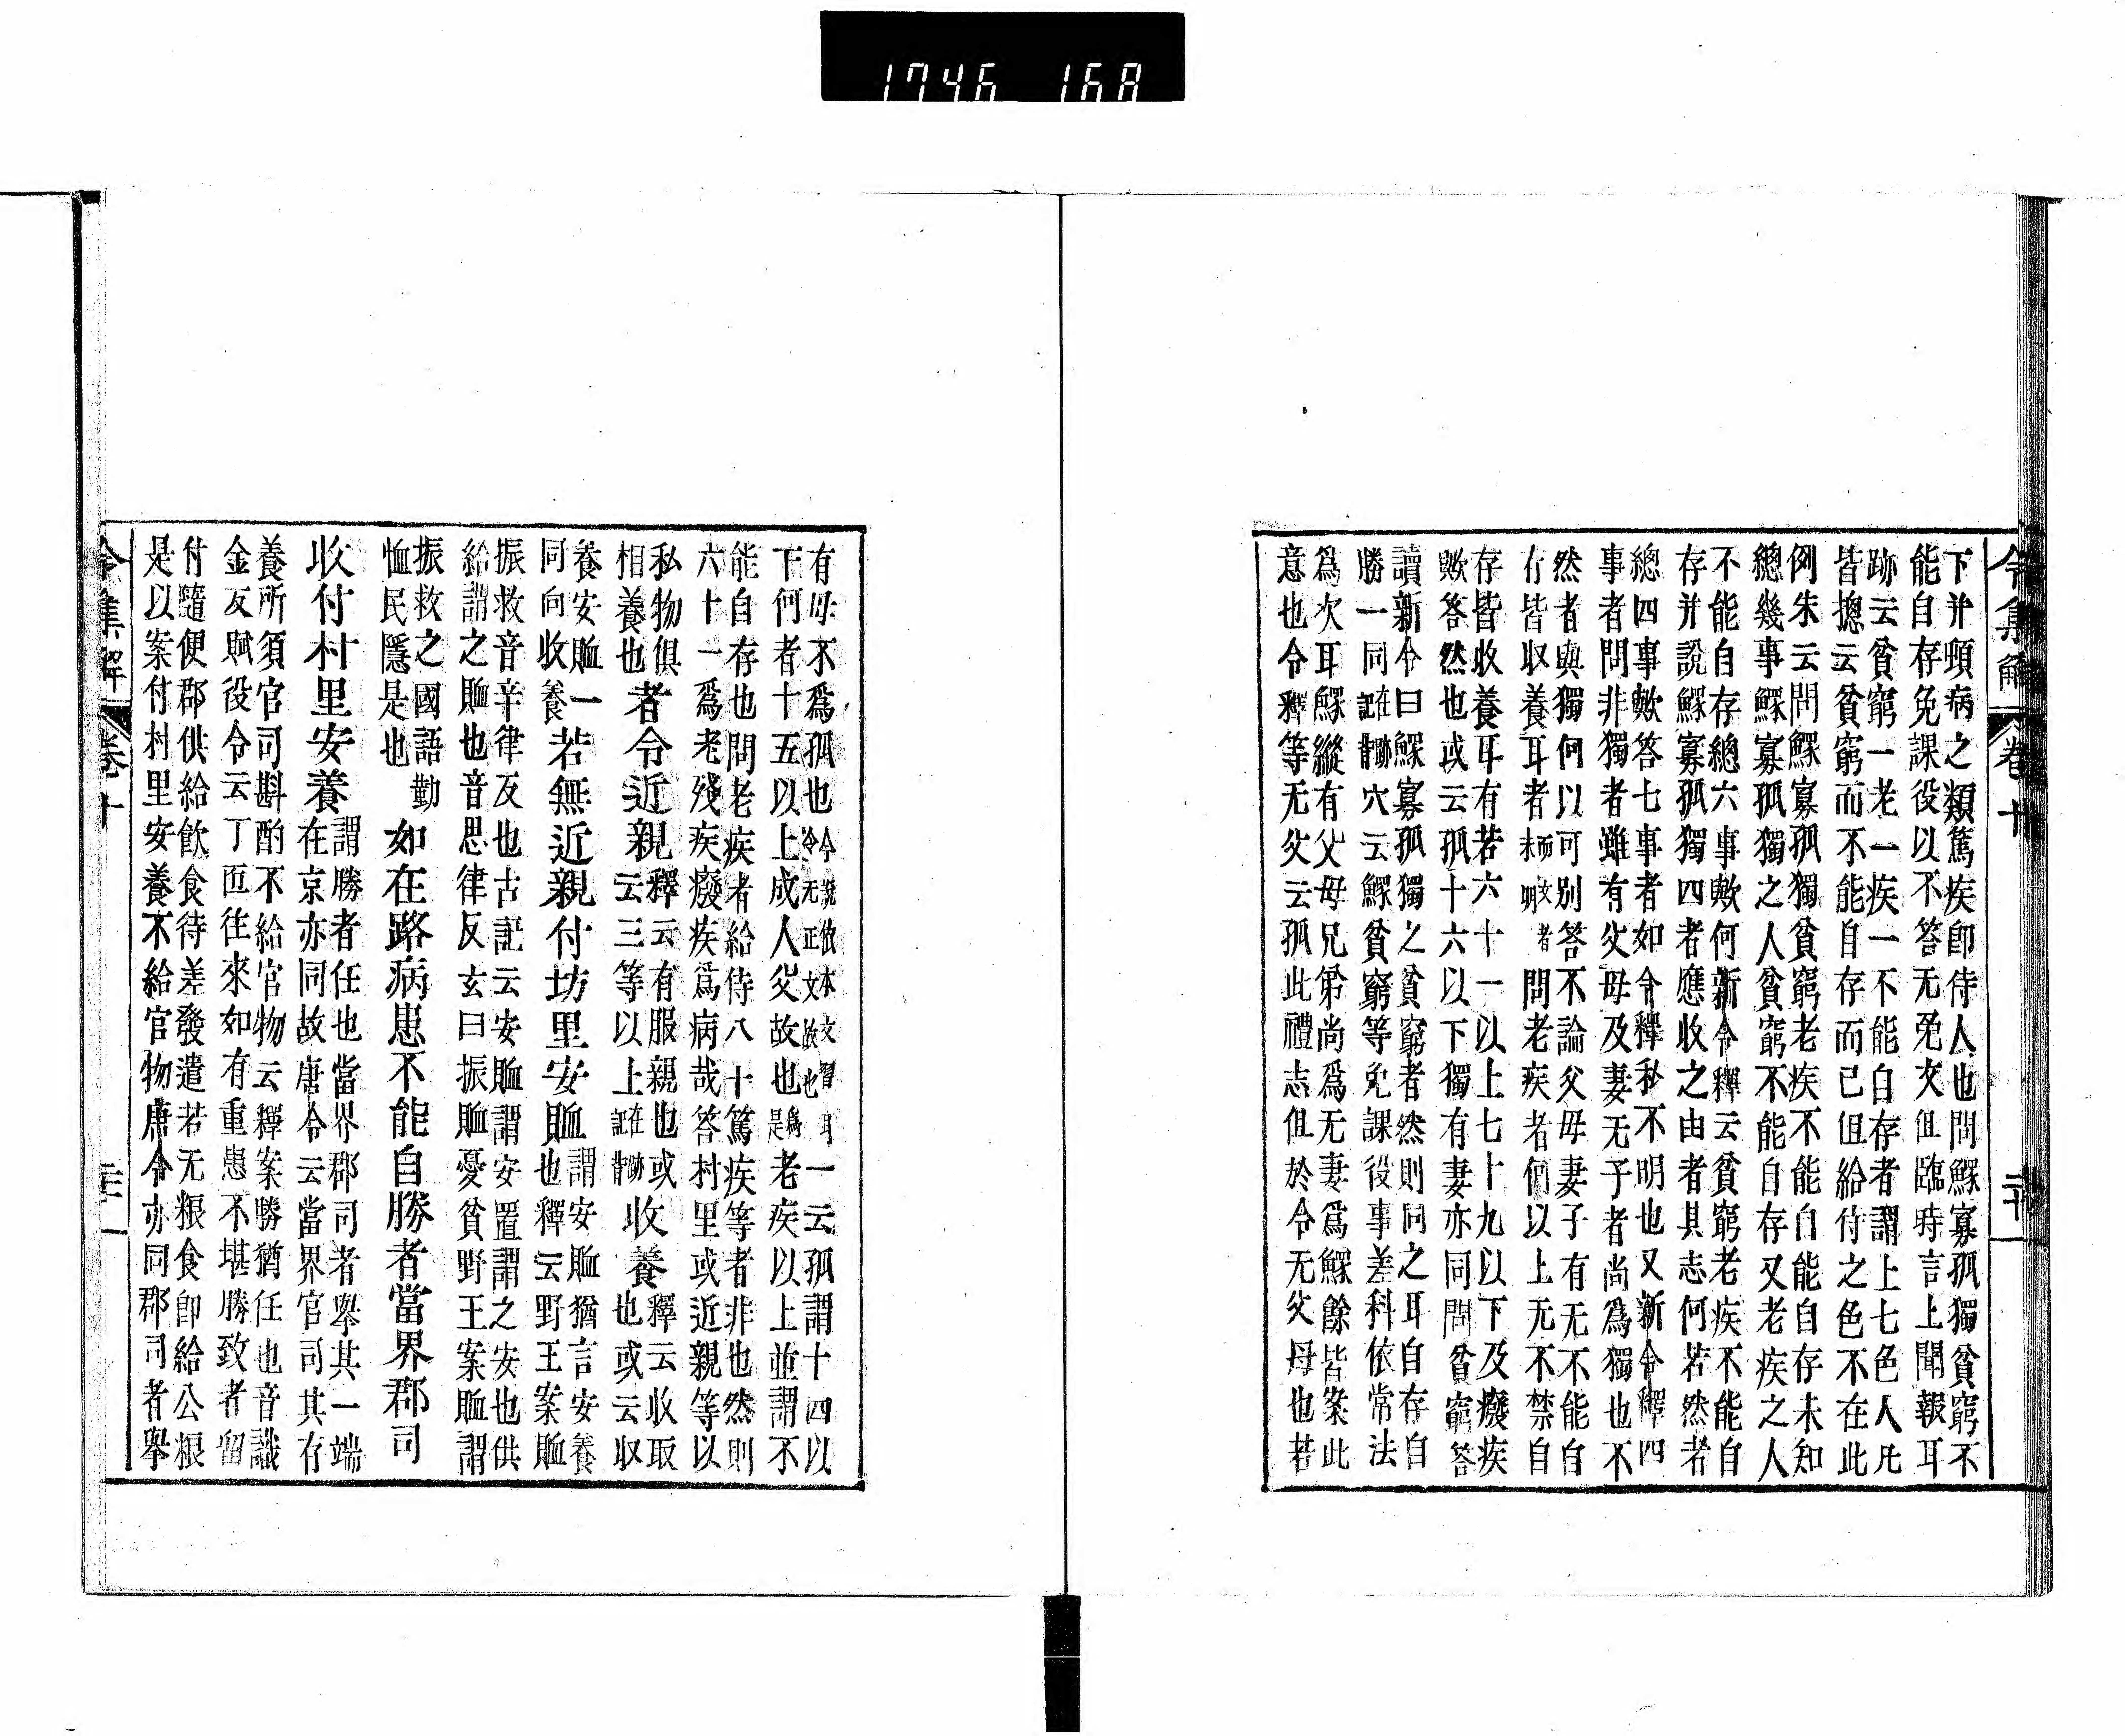 1746 168
令集解 卷十
下并頓病之類篤疾卽侍人也問鰥寡孤獨貧窮不
能自存免課役以不答无免文但臨時言上聞報耳
跡云貧窮一老一疾一不能自存者謂上七色人凡
皆摠云貧窮而不能自存而已但給侍之色不在此
例朱云問鰥寡孤獨貧窮老疾不能自能自存未知
總幾事鰥寡孤獨之人貧窮不能自存又老疾之人
不能自存總六事歟何新令釋云貧窮老疾不能自
存并說鰥寡孤獨四者應收之由者其志何若然者
總四事歟答七事者如令釋私不明也又新令釋四
事者問非獨者雖有父母及妻无子者尚爲獨也不
然者與獨何以可別答不論父母妻子有无不能自
存皆収養耳者 問老疾者們以上无不禁自
存皆收養耳有若六十一以上七十九以下及癈疾
歟答然也或云孤十六以下獨有妻亦同問貧窮答
讀新令曰鰥寡孤獨之貧窮者然則同之耳自存自
勝一同 穴云鰥貧窮等免課役事差科依常法
爲次耳鰥縱有父母兄弟尚爲无妻爲鰥餘皆案此
意也令釋等无父云孤此禮志但於令无父母也若
有母不爲孤也 一云孤謂十四以
下何者十五以上成人父故也 老疾以上並謂不
能自存也問老疾者給侍八十篤疾等者非也然則
六十一爲老殘疾癈疾爲病哉答村里或近親等以
私物俱
相養也者令近親釋云有服親也或
云三等以上 收養釋云收取
也或云収
養安賉一
同向收養若無近親付坊里安賉謂安賉猶言安養
也釋云野王案賉
振救音辛律反也古記云安賉謂安置謂之安也供
給謂之賉也音思律反玄曰振賉憂貧野王案賉謂
振救之國語勤
恤民隱是也如在路病患不能自勝者當界郡司
收付村里安養謂勝者任也當界郡司者擧其一端
在京亦同故唐令云當界官司其存
養所須官司斟酌不給官物云釋案勝猶任也音識
金反賦役令云丁匠往來如有重患不堪勝致者留
付隨便郡供給飲食待差發遣若无粮食卽給公粮
是以案付村里安養不給官物唐令亦同郡司者擧
令集解 卷十